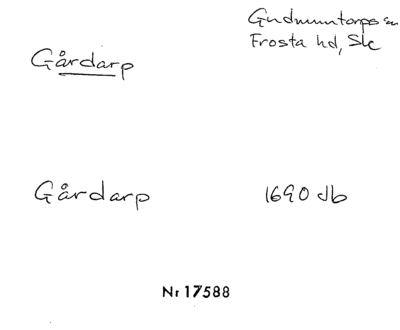 Gudmuntorps sn
Frosta hd, Sk
Gårdarp
Gårdarp 1690 Jb
Nr 17588